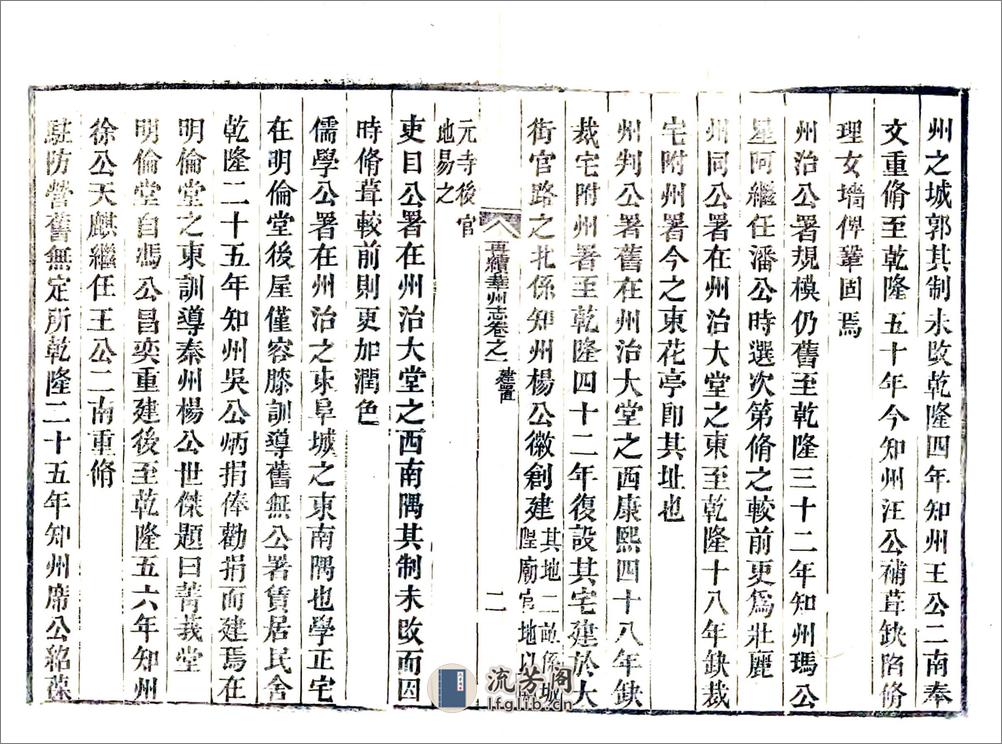 州之城郭其制未改乾隆四年知州王公二南奉
文重脩至乾隆五十年今知州汪公補葺缺陷脩
理女墻俾鞏固焉
州治公署規模仍舊至乾隆三十二年知州瑪公
星阿繼任潘公時選次第脩之較前更爲壯麗
州同公署在州治大堂之東至乾隆十八年缺裁
宅附州署今之東花亭卽其址也
州判公署舊在州治大堂之西康熙四十八年缺
裁宅附州署至乾隆四十二年復設其宅建於大
街官路之北係知州楊公徽創建其地二畝係城
隍廟官地以
再續華州志卷之二 建置
二
元寺後官
地易之
吏目公署在州治大堂之西南隅其制未改而因
時脩葺較前則更加潤色
儒學公署在州治之東阜城之東南隅也學正宅
在明倫堂後屋僅容膝訓導舊無公署賃居民舍
乾隆二十五年知州吳公炳捐俸勸捐而建焉在
明倫堂之東訓導秦州楊公世傑題曰菁莪堂
明倫堂自馮公昌奕重建後至乾隆五六年知州
徐公天麒繼任王公二南重脩
駐防營舊無定所乾隆二十五年知州席公紹葆
流芳閣
lfglib.cn